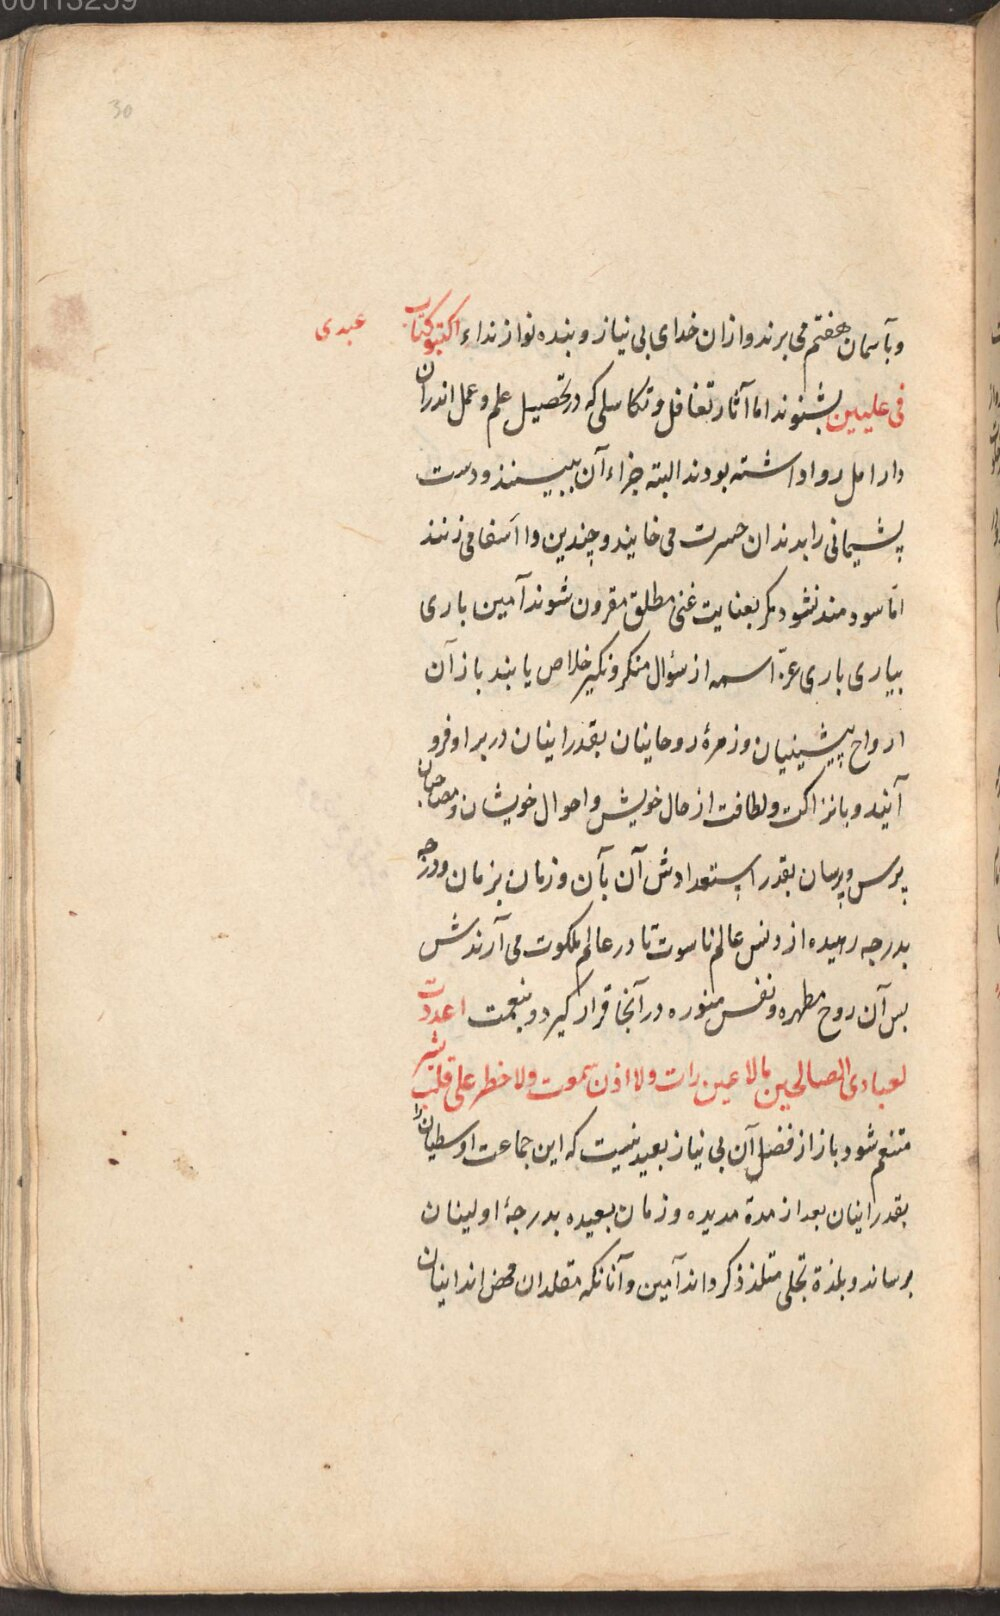 00113259
30
وبآسمان هفتم می برند وازان خدای بی نیاز و بنده نواز نداء اکتبو کتاب عبدی
فی علیین بشنوند اما آثار تغافل و تکاسلی که در تحصیل علم و عمل اندران
دار امل روا داشته بودند البته جزاء آن ببینند و دست
پشیمانی را بدندان حسرت می خایند و چندین وا آسفا می زنند
امّا سودمند نشود مکر بعنایت غنی مطلق مقرون شوند آمین باری
بیاری باری عزّ اسمه از سؤال منکر و نکیر خلاص یابند باز آن
ارواح پیشینیان و زمرهٔ روحانیان بقدر اینان در بر او فرو
آیند و با نزاکت و لطافت از حال خویش و احوال خویشان و مصاحبان
پرس و پرسان بقدر استعدادش آن بآن و زمان بزمان و درجه
بدرجه رمیده از دنس عالم ناسوت تا در عالم ملکوت می آرندش
بس آن روح مطهره و نفس منوره در آنجا قرار کیرد و بنعمت اعددت
لعبادی الصالحین مالا عین رات ولا اذن سمعت ولا خطر علی قلب بشر
متنعم شود باز از فضل آن بی نیاز بعید نیست که این جماعت اوسطیان را
بقدر اینان بعد از مدة مدیده و زمان بعیده بدرجهٔ اولینان
برساند و بلذة تجلی متلذذ کرداند آمین و آنانکه مقلدان محض اند اینان